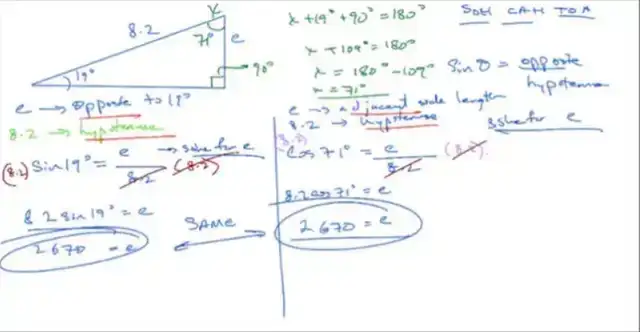 x
8.2
71°
e
19°
90°
x + 19° + 90° = 180°
x + 109° = 180°
x = 180° - 109°
x = 71°
SOH CAH TOA
Sin θ = opposite
hypotenuse
e → opposite to 19°
8.2 → hypotenuse
→ solve for e
(8.2) Sin 19° = e (8.2)
8.2
8.2 sin 19° = e
2.670 = e
SAME
e → adjacent side length
8.2 → hypotenuse
solve for e
(8.2) cos 71° = e (8.2)
8.2
8.2 cos 71° = e
2.670 = e